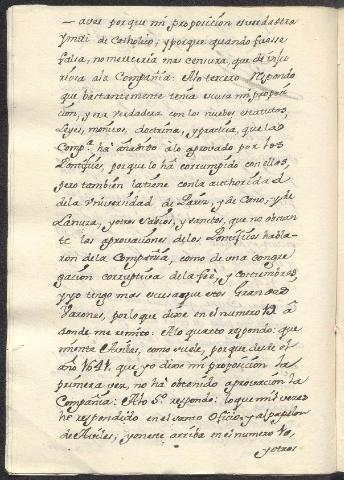 — aver porque mi proposicion es verdadera
y mui de Catholico; y porque quando fuesse
falsa, no mereceria mas censura, que de injo
riosa ala Compañia: Alo tercero respondo
que bastantemente tenia escusa mi proposi
cion, y era verdadera con los nuebos estatutos,
Leyes, monitos, doctrina, y practica, que la
Compª. ha añadido alo aprovado por los
Pontifices, por que lo ha corrompido con ellos,
pero tambien la tiene con la authoridad
dela Vniversidad de Paris, y de Cano, y de
Lanuza, y otros sabios, y santos, que no obstan
te las aprovaciones delos Pontifices habla-
ron dela Compañia, como de una congre
gacion corruptiva dela feè, y costumbres
y yo tengo mas escusa que estos Grandes
Varones, por lo que dixe en el numero 12 à
donde me remito: Alo quarto respondo: que
miente Aviles, como suele, por que desde el
año 1641. que yo dixe mi proposicion la
primera vez, no ha obtenido aprovacion la
Compañia: Alo 5º. respondo: lo que mil vezes
he respondido en el santo Oficio, y al papelon
de Aviles; y en este arriba en el numero 10,
y otros